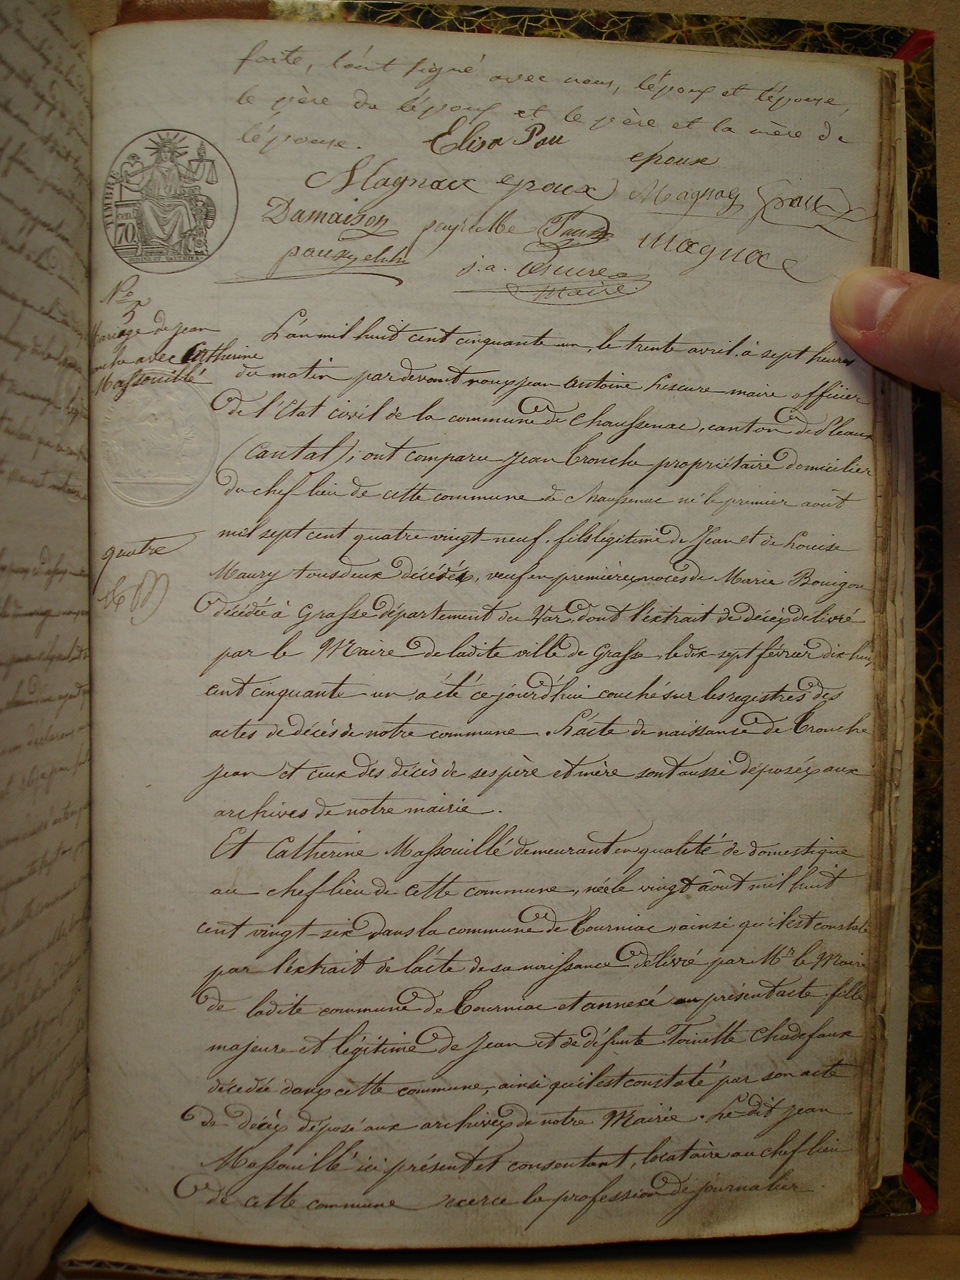 forte, l'ont signé avec nous, l'époux et l'épouse,
le père de l'époux et le père et la mère de
l'épouse. Elisa Pau
epoux
Magnac epoux Magnac
Damaison Magnac
maire.
TIMBRE
70
No
5
Mariage de Jean
avec Catherine
Massouillé
quatre
L'an mil huit cent cinquante un, le trente avril, à sept heures
du matin par devant nous Jean Antoine Lescure maire officier
de l'Etat civil de la commune de Chaussenac, canton de Pleaux
(Cantal), ont comparu Jean Tronche propriétaire domicilier
du chef lieu de cette commune de Chaussenac né le premier août
mil sept cent quatre vingt-neuf, fils légitime de Jean et de Louise
Maury tous deux décédés, veuf en premières noces de Marie Bouigou
décédée à Grasse département du Var, dont l'extrait de décès délivré
par le Maire de ladite ville de Grasse, le dix-sept février dix huit
cent cinquante-un a été ce jourd'hui couché sur les registres des
actes de décès de notre commune. L'acte de naissance de Tronche
Jean et ceux des décès de ses père et mère sont aussi déposés aux
archives de notre mairie.
Et Catherine Massouillé demeurant en qualité de domestique
au chef lieu de cette commune, née le vingt août mil huit
cent vingt-six dans la commune de Tourniac, ainsi qu'il est constaté
par l'extrait de l'acte de sa naissance délivré par Mr le Maire
de ladite commune de Tourniac et annexé au présent acte, fille
majeure et légitime de Jean et de défunte Toinette Chadefaux
décédée dans cette commune, ainsi qu'il est constaté par son acte
de décès déposé aux archives de notre Mairie. Le dit Jean
Massouillé ici présent et consentant, locataire au chef lieu
de cette commune exerce la profession de journalier.